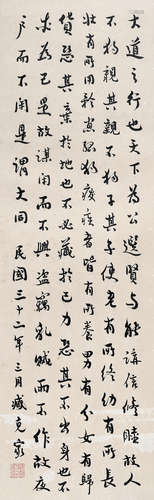 大道之行也天下為公選賢与能講信修睦故人
不独親其親不独子其子使老有所終幼有所長
壯有所用矜寡孤独癈疾者皆有所養男有分女有歸
貨惡其棄於地也不必藏於己力惡其不出於身也不
必為己是故謀閉而不興盜竊亂賊而不作故外
戶而不閉是謂大同 民國三十二年三月臧克家